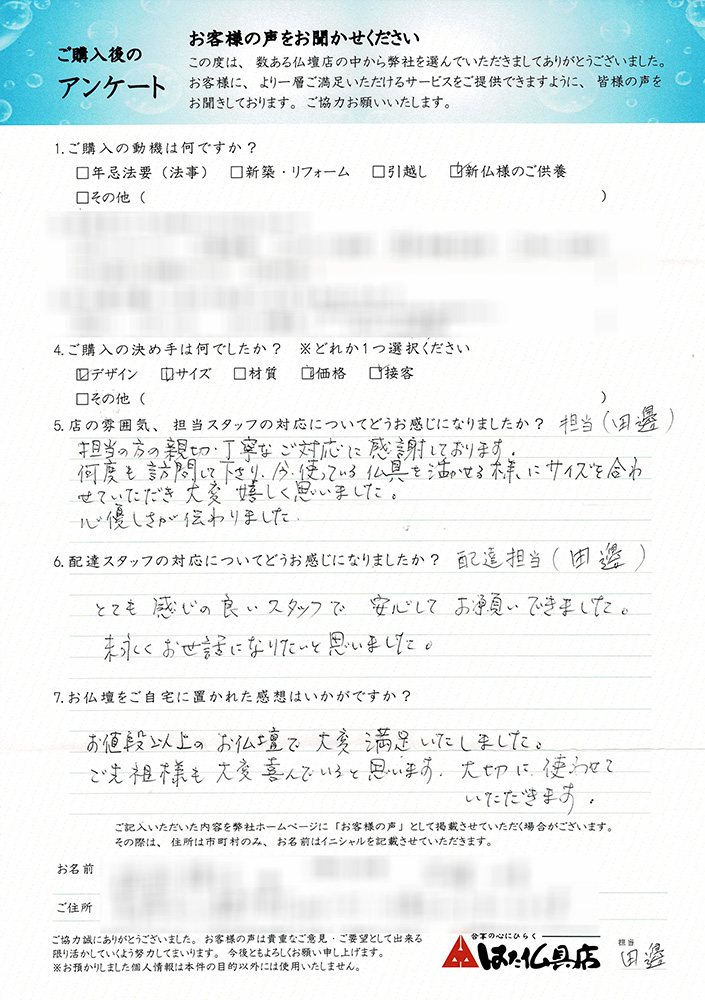 ご購入後の
アンケート
お客様の声をお聞かせください
この度は、数ある仏壇店の中から弊社を選んでいただきましてありがとうございました。
お客様に、より一層ご満足いただけるサービスをご提供できますように、皆様の声を
お聞きしております。ご協力お願いいたします。
1.ご購入の動機は何ですか？
□年忌法要（法事） □新築・リフォーム □引越し ☑新仏様のご供養
□その他（ ）
4.ご購入の決め手は何でしたか？ ※どれか1つ選択ください
☑デザイン ☑サイズ □材質 ☑価格 ☑接客
□その他（ ）
5.店の雰囲気、担当スタッフの対応についてどうお感じになりましたか？ 担当(田邊)
担当の方の親切・丁寧なご対応に感謝しております。
何度も訪問して下さり、今、使っている仏具を活かせる様、にサイズを合わ
せていただき大変嬉しく思いました。
心優しさが伝わりました.
6.配達スタッフの対応についてどうお感じになりましたか？ 配達担当(田邊)
とても感じの良いスタッフで 安心して お願いできました。
末永くお世話になりたいと思いました。
7.お仏壇をご自宅に置かれた感想はいかがですか？
お値段以上のお仏壇で大変満足いたしました。
ご先祖様も大変喜んでいると思います. 大切に使わせて
いただきます。
ご記入いただいた内容を弊社ホームページに「お客様の声」として掲載させていただく場合がございます。
その際は、住所は市町村のみ、お名前はイニシャルを記載させていただきます。
お名前
ご住所
ご協力誠にありがとうございました。お客様の声は貴重なご意見・ご要望として出来る
限り活かしていくよう努力してまいります。今後ともよろしくお願い申し上げます。
※お預かりしました個人情報は本件の目的以外には使用いたしません。
合掌の心にひらく
はた仏具店
担当
田邊